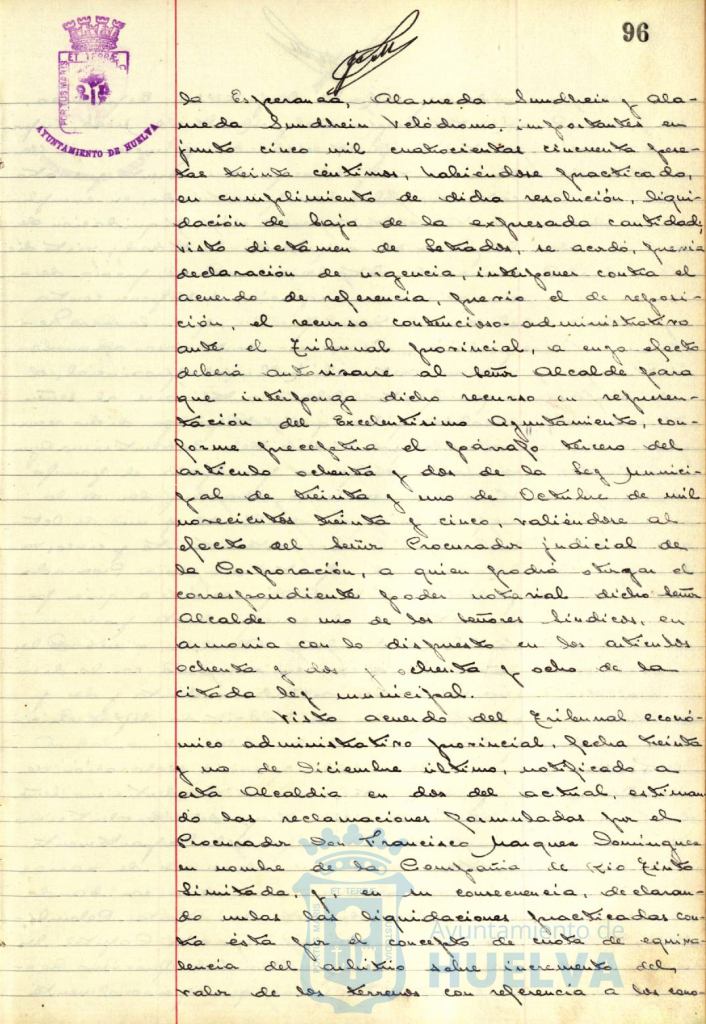 96
ET TERRÆ C
PORTUS MARIS
AYUNTAMIENTO DE HUELVA
la Esperanza, Alameda Sundhein y Ala-
meda Sundhein Velódromo, importantes en
junto cinco mil cuatrocientas cincuenta pese-
tas treinta céntimos, habiéndose practicado,
en cumplimiento de dicha resolución, liqui-
dación de baja de la expresada cantidad;
visto dictamen de Letrados, se acordó, previa
declaración de urgencia, interponer contra el
acuerdo de referencia, previo el de reposi-
ción, el recurso contencioso-administrativo
ante el Tribunal provincial, a cuyo efecto
deberá autorizarse al Señor Alcalde para
que interponga dicho recurso en represen-
tación del Excelentísimo Ayuntamiento, con-
forme preceptua el párrafo tercero del
artículo ochenta y dos de la Ley Munici-
pal de treinta y uno de Octubre de mil
novecientos treinta y cinco, valiéndose al
efecto del Señor Procurador judicial de
la Corporación, a quien podrá otorgar el
correspondiente poder notarial dicho Señor
Alcalde o uno de los Señores Síndicos, en
armonia con lo dispuesto en los artículos
ochenta y dos y ochenta y ocho de la
citada ley municipal.
Visto acuerdo del Tribunal econó-
mico administrativo provincial, fecha treinta
y uno de Diciembre último, notificado a
esta Alcaldia en dos del actual, estiman-
do las reclamaciones formuladas por el
Procurador Don Francisco Marquez Dominguez
en nombre de la Compañia de Rio Tinto
Limitada, y, en su consecuencia, declaran-
do nulas las liquidaciones practicadas con-
tra ésta por el concepto de cuota de equiva-
lencia del arbitrio sobre incremento del
valor de los terrenos con referencia a los cono-
Ayuntamiento de
HUELVA